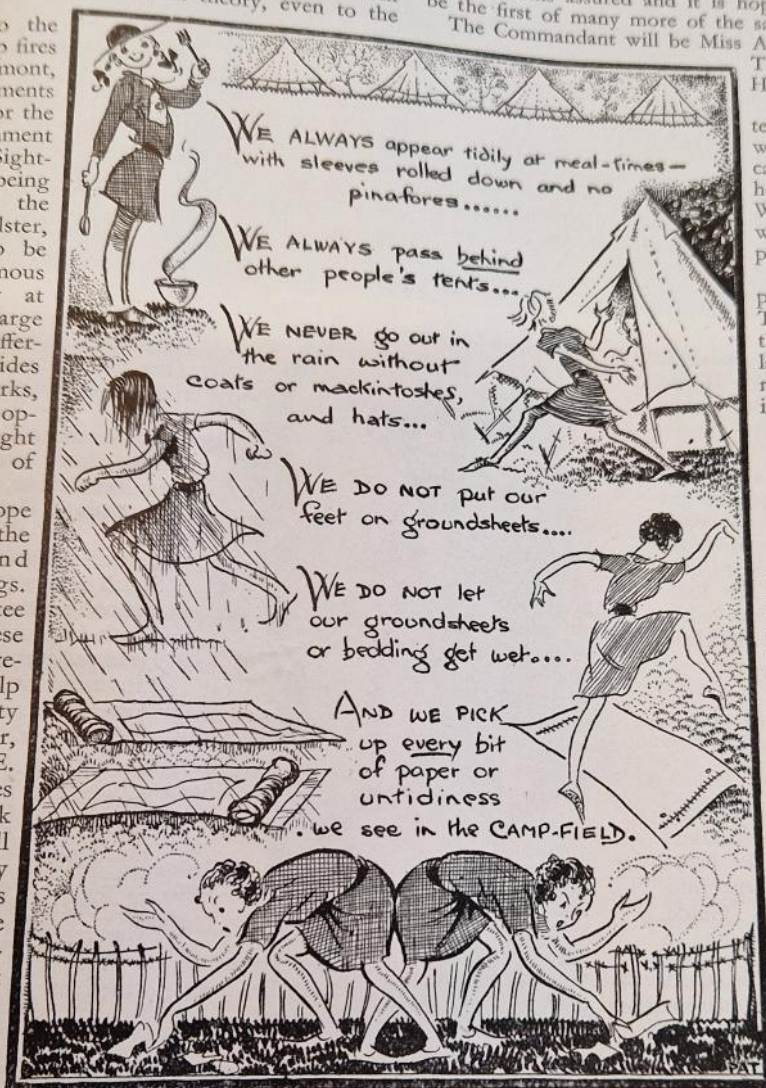 theory, even to the
be the first of many more of the
The Commandant will be Miss A
the
fires
mont,
ments
or the
nment
Sight-
being
the
lster,
be
nous
at
arge
ffer-
ides
rks,
op-
ght
of
ope
the
nd
gs.
tee
ese
re-
lp
ty
r,
E.
es
k
ll
y
s
e
WE ALWAYS appear tidily at meal-times—
with sleeves rolled down and no
pinafores......
WE ALWAYS pass behind
other people's tents...
WE NEVER go out in
the rain without
coats or mackintoshes,
and hats...
WE DO NOT put our
feet on groundsheets....
WE DO NOT let
our groundsheets
or bedding get wet....
AND WE PICK
up every bit
of paper or
untidiness
. we see in the CAMP-FIELD.
PAT